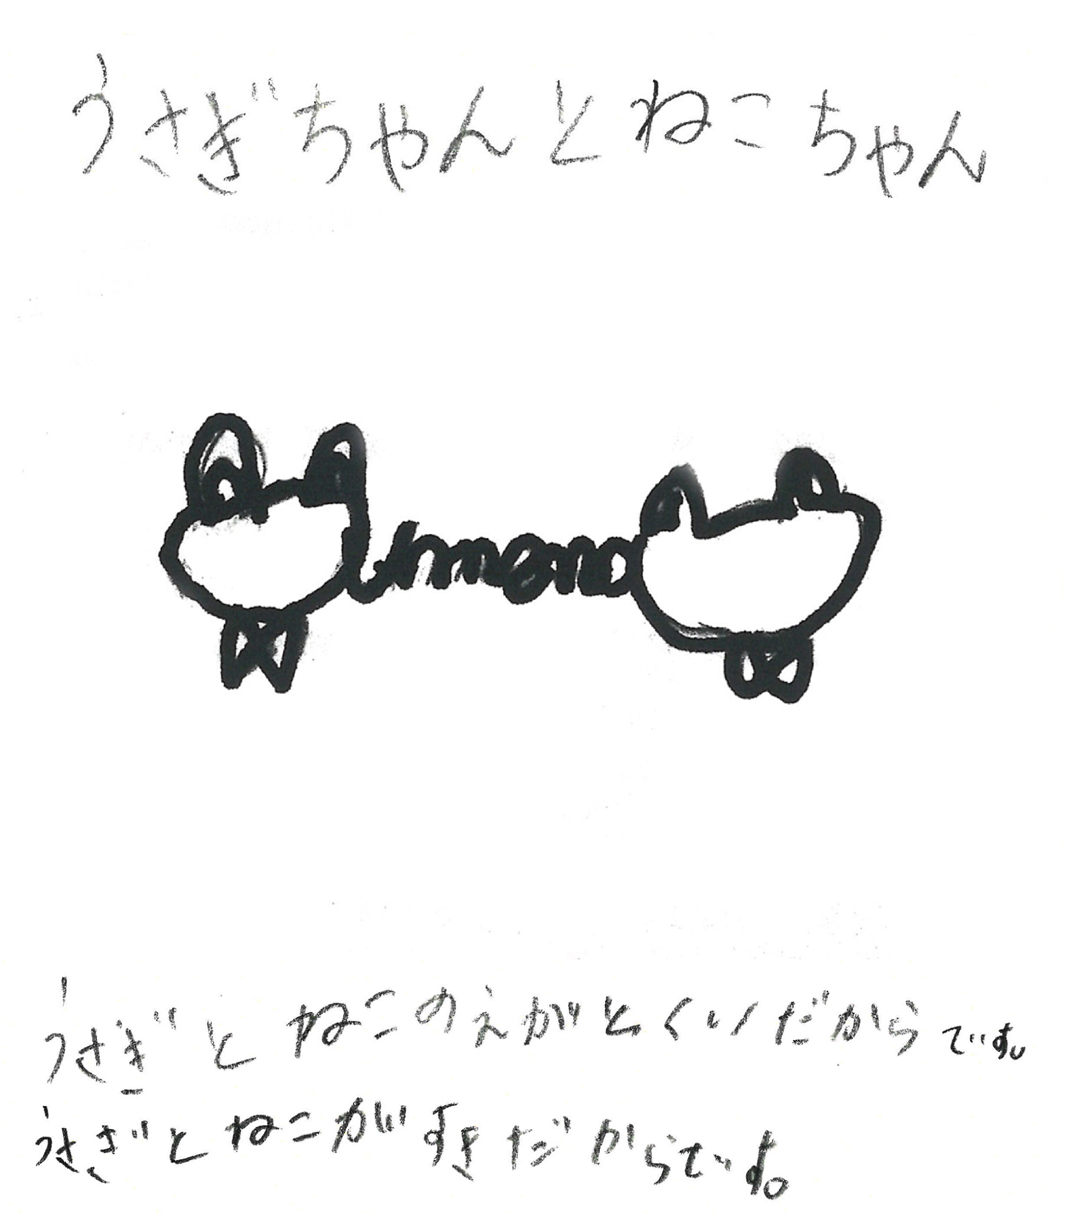 うさぎちゃんとねこちゃん
unmono
うさぎとねこのえがとくいだからです。
うさぎとねこがすきだからです。